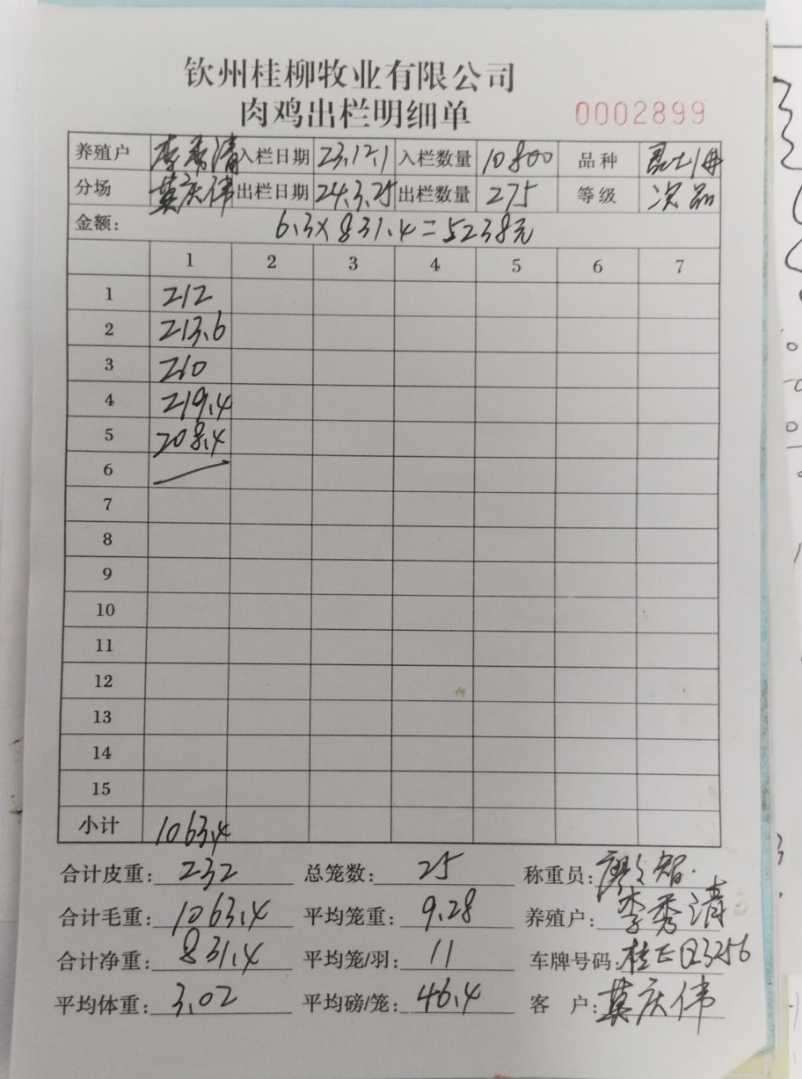 钦州桂柳牧业有限公司
肉鸡出栏明细单 0002899
养殖户 李秀清 入栏日期 23.12.1 入栏数量 10800 品种
分场 莫庆伟 出栏日期 24.3.25 出栏数量 275 等级 次品
金额: 6.3×831.4=5238元
1 2 3 4 5 6 7
1 212
2 213.6
3 210
4 219.4
5 208.4
6
7
8
9
10
11
12
13
14
15
小计 1063.4
合计皮重: 232 总笼数: 25 称重员: 廖智
合计毛重: 1063.4 平均笼重: 9.28 养殖户: 李秀清
合计净重: 831.4 平均笼/羽: 11 车牌号码:
平均体重: 3.02 平均磅/笼: 46.4 客 户: 莫庆伟